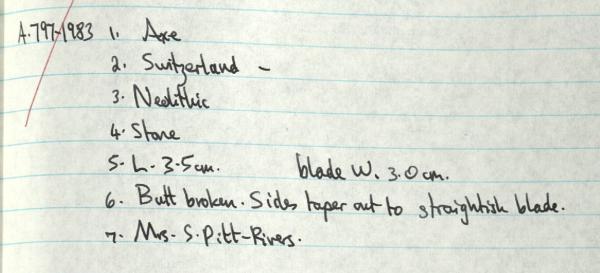 A.797-1983 1. Axe
2. Switzerland –
3. Neolithic
4. Stone
5. L. 3.5cm. blade W. 3.0cm.
6. Butt broken. Sides taper out to straightish blade.
7. Mrs. S. Pitt-Rivers.